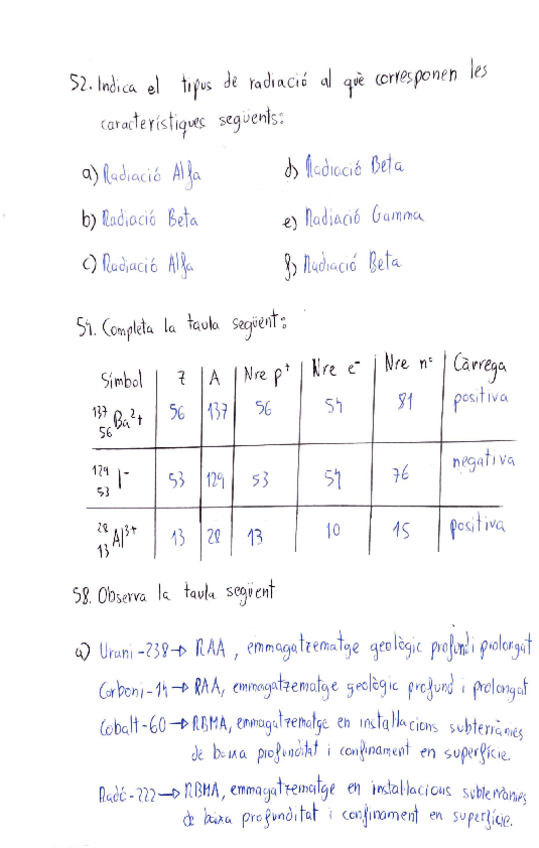 52. Indica el tipus de radiació al què corresponen les
característiques següents:
a) Radiació Alfa
d) Radiació Beta
b) Radiació Beta
e) Radiació Gamma
c) Radiació Alfa
f) Radiació Beta
54. Completa la taula següent:
Símbol Z A Nre p⁺ Nre e⁻ Nre nº Càrrega
¹³⁷₅₆Ba²⁺ 56 137 56 54 81 positiva
¹²⁹₅₃I⁻ 53 129 53 54 76 negativa
²⁸₁₃Al³⁺ 13 28 13 10 15 positiva
58. Observa la taula següent
a) Urani-238→ RAA, emmagatzematge geològic profund i prolongat
Carboni-14→ RAA, emmagatzematge geològic profund i prolongat
Cobalt-60→RBMA, emmagatzematge en instal·lacions subterrànies
de baixa profunditat i confinament en superfície.
Radó-222→RBMA, emmagatzematge en instal·lacions subterrànies
de baixa profunditat i confinament en superfície.